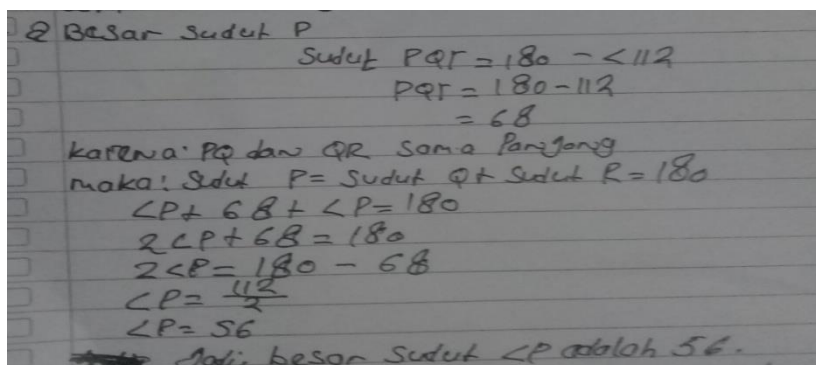 2 Besar sudut P
Sudut PQr = 180 - <112
PQr = 180-112
= 68
karena: PQ dan QR sama Panjang
maka: Sudut P= Sudut Q+ Sudut R = 180
<P+ 68+ <P= 180
2<P+68= 180
2<P= 180 - 68
<P= 112/2
<P= 56
Jadi besar sudut <P adalah 56.